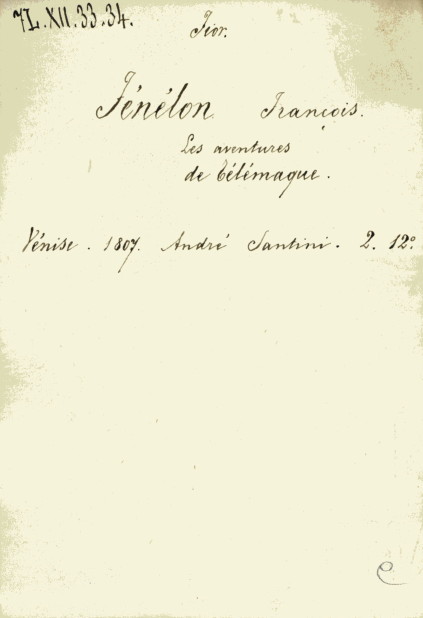 7L.XII.33.34.
Fior.
Fénélon François.
Les aventures
de Télémaque.
Vénise. 1807. André Santini. 2. 12°
C